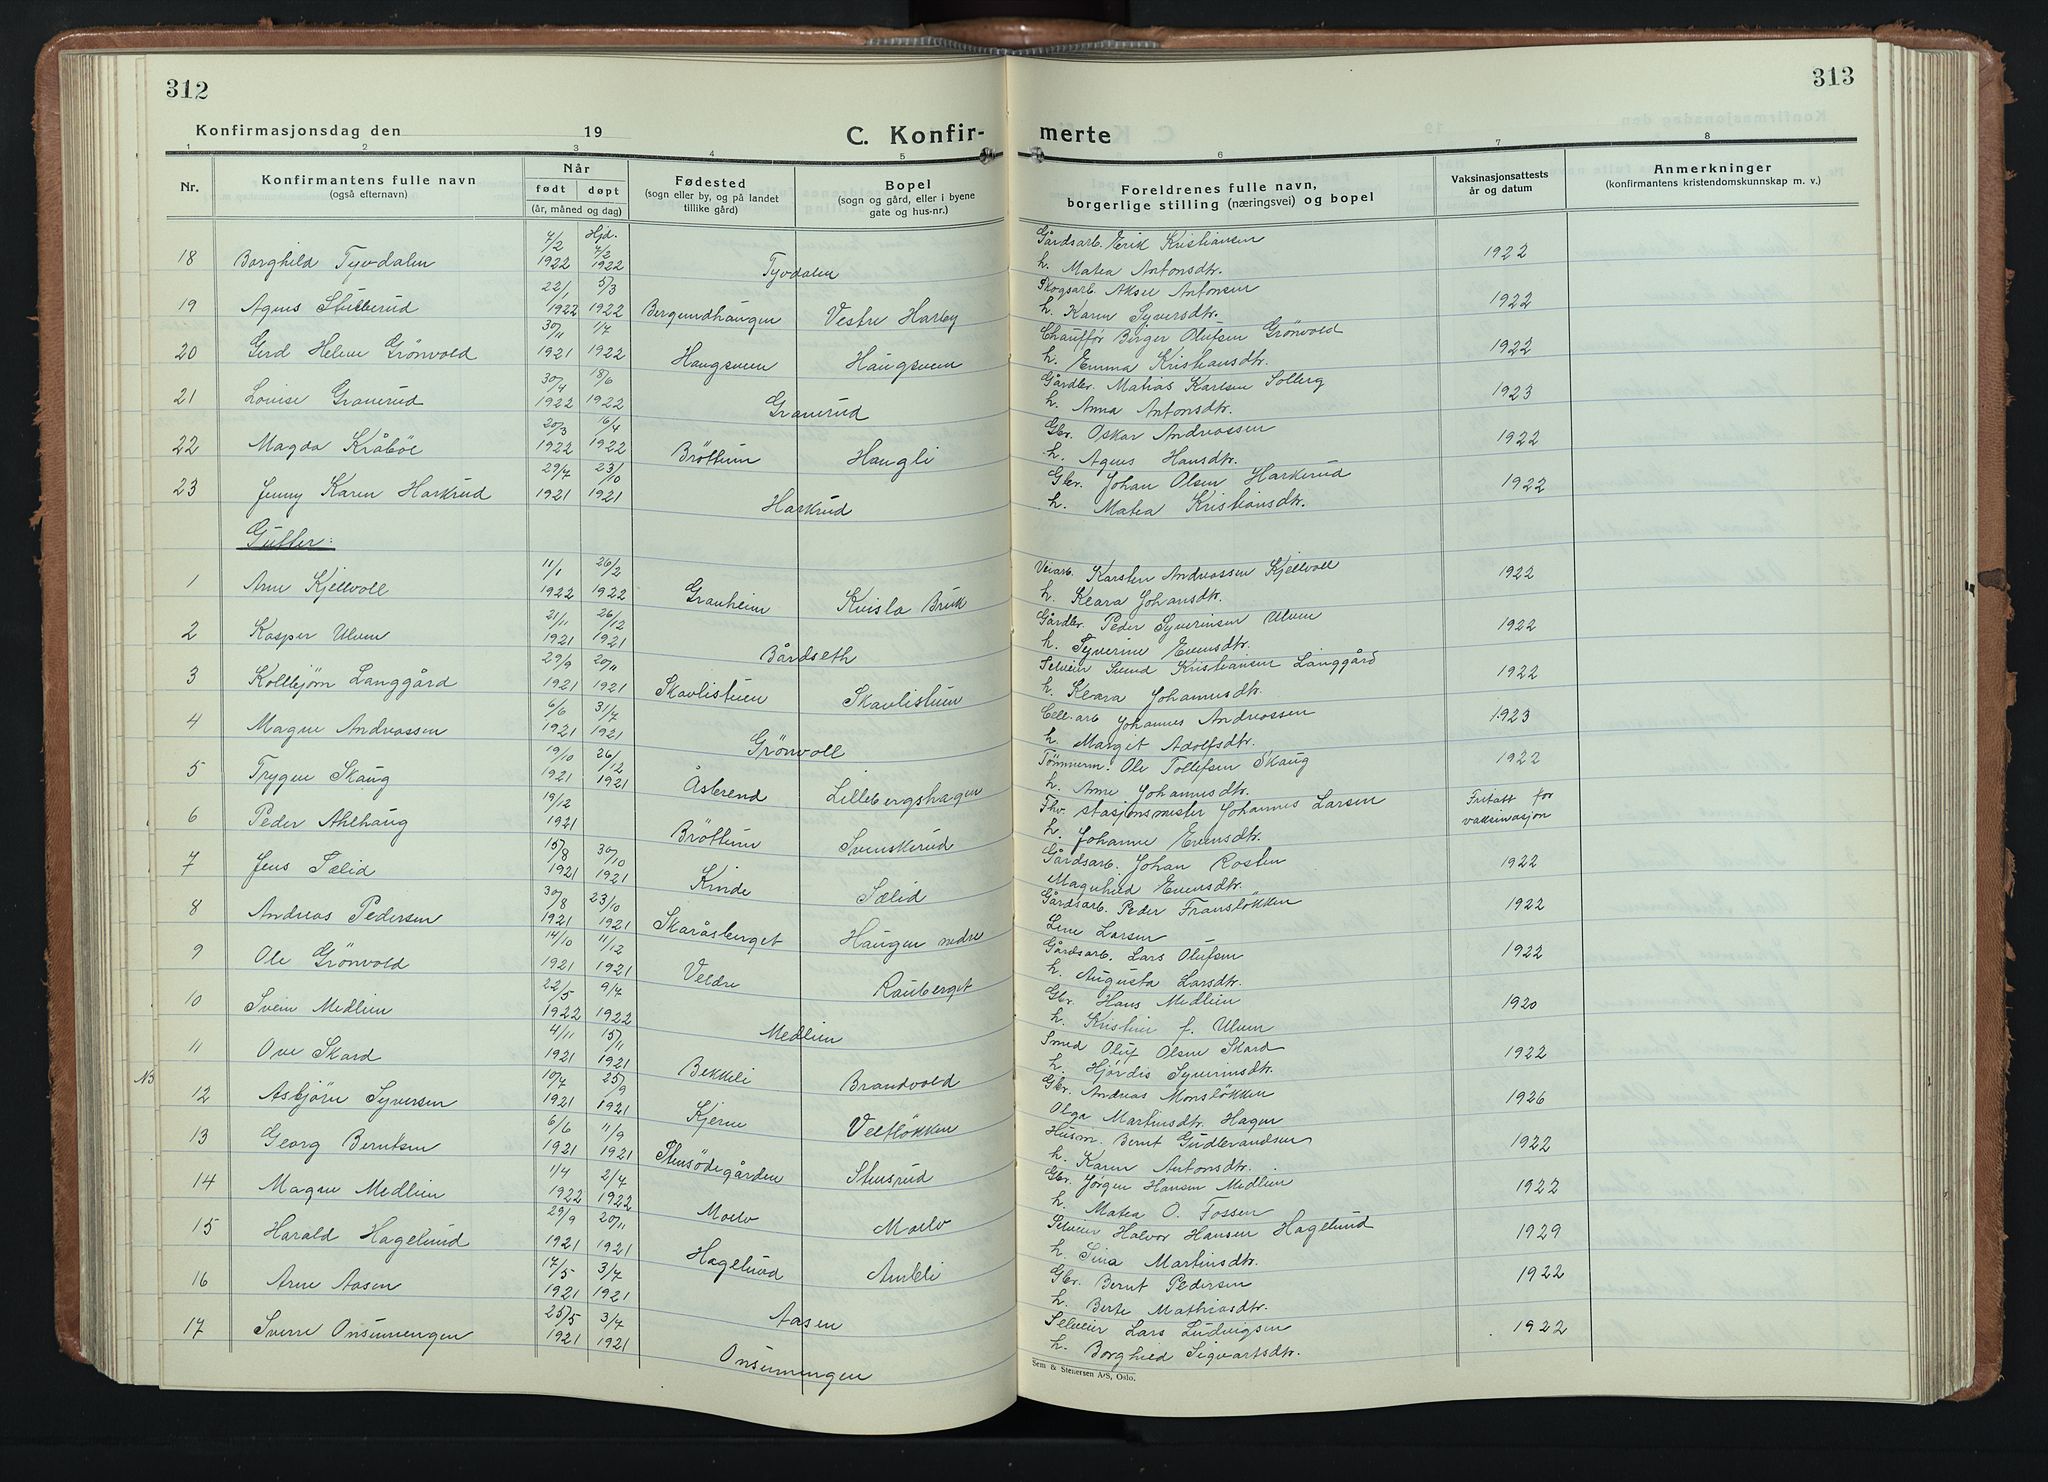 312
Konfirmasjonsdag den 19
C. Konfir-
1 2 3 4 5
Nr. Konfirmantens fulle navn (også efternavn) Når født døpt (år, måned og dag) Fødested (sogn eller by, og på landet tillike gård) Bopel (sogn og gård, eller i byene gate og hus-nr.)
18 Borghild Tyvdalen 7/2 1922 Hjd. 7/2 1922 Tyvdalen
19 Agnes Stubberud 22/1 1922 5/3 1922 Bergundhaugen Vestre Harby
20 Gerd Helene Grönvold 30/11 1921 1/7 1922 Haugsveen Haugsveen
21 Louise Granerud 30/4 1922 18/6 1922 Granerud
22 Magda Kråböe 20/3 1922 16/4 1922 Bröttum Haugli
23 Jenny Karen Harkrud 29/7 1921 23/10 1921 Harkrud
Gutter:
1 Arne Kjellvoll 11/1 1922 26/2 1922 Granheim Kvisla Bruk
2 Kasper Ulven 21/11 1921 26/12 1921 Bårdseth
3 Kolbjørn Langgård 29/9 1921 20/11 1921 Skavlistuen Skavlistuen
4 Magne Andreassen 6/6 1921 31/7 1921 Grönvoll
5 Trygve Skaug 19/10 1921 26/12 1921 Åsterend Lillebergshagen
6 Peder Ahlhaug 19/12 1921 Bröttum Svenskerud
7 Jens Sælid 15/8 1921 30/10 1921 Kinde Sælid
8 Andreas Pedersen 30/8 1921 23/10 1921 Skaråsberget Haugen nedre
9 Ole Grönvold 14/10 1921 11/12 1921 Veldre Rauberget
10 Svein Medlien 22/5 1922 9/7 1922 Medlien
11 Ove Skard 4/11 1921 15/11 1921 Bekkeli Brandvold
NB
12 Asbjörn Syversen 10/7 1921 25/9 1921 Kjerne Veltløkken
13 Georg Berntsen 6/6 1921 11/9 1921 Stensödegården Stensrud
14 Magne Medlien 1/4 1922 2/4 1922 Moelv Moelv
15 Harald Hagelund 29/9 1921 20/11 1921 Hagelund
16 Arne Aasen 17/5 1921 3/7 1921 Aasen
17 Sverre Onsumengen 25/5 1921 3/7 1921 Onsumengen
313
merte
6 7 8
Foreldrenes fulle navn, borgerlige stilling (næringsvei) og bopel Vaksinasjonsattests år og datum Anmerkninger (konfirmantens kristendomskunnskap m. v.)
Gårdsarb. Erik Kristiansen 1922
h. Matea Antonsdtr.
Skogsarb. Aksel Antonsen 1922
h. Karen Syversdtr.
Chaufför Birger Olufsen Grönvold 1922
h. Emma Kristiansdtr.
Gårdbr. Matias Karlsen Solberg 1923
h. Anna Antonsdtr.
Gbr. Oskar Andreassen 1922
h. Agnes Hansdtr.
Gbr. Johan Olsen Harkerud 1922
h. Matea Kristiansdtr.
Veiarb. Karsten Andreassen Kjellvoll 1922
h. Klara Johansdtr.
Gårdbr. Peder Syverinsen Ulven 1922
h. Syverine Evensdtr.
Selveier Svend Kristiansen Langgård 1922
h. Klara Johannesdtr.
Cell.arb Johannes Andreassen 1923
h. Marget Adolfsdtr.
Tömmerm. Ole Tollefsen Skaug 1922
h. Anne Johannesdtr.
Fhv. stasjonsmester Johannes Larsen Fritatt for vaksinasjon
h. Johanne Evensdtr.
Gårdsarb. Johan Rosten 1922
Magnhild Evensdtr.
Gårdsarb. Peder Fransløkken 1922
Lene Larsen
Gårdsarb. Lars Olufsen 1922
h. Augusta Larsdtr.
Gbr. Hans Medlien 1920
h. Kristine f. Ulven
Smed Oluf Olsen Skard 1922
h. Hjørdis Syverinsdtr.
Gbr. Andreas Monsløkken 1926
Olga Martinsdtr. Hagen
Husm. Bernt Gudbrandsen 1922
h. Karen Antonsdtr.
Gbr. Jørgen Hansen Medlien 1922
h. Matea O. Fossen
Selveier Halvor Hansen Hagelund 1929
h. Sina Martinsdtr.
Gbr. Bernt Pedersen 1922
h. Berte Mathiasdtr.
Selveier Lars Ludvigsen 1922
h. Borghild Sigvartsdtr.
Sem & Stenersen A/S, Oslo.